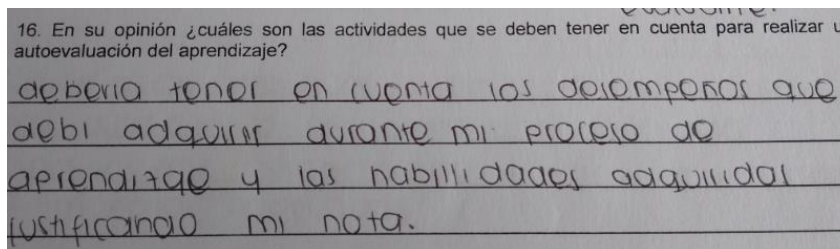 16. En su opinión ¿cuáles son las actividades que se deben tener en cuenta para realizar
autoevaluación del aprendizaje?
deberia tener en cuenta los desempeños que
debi adquirir durante mi proceso de
aprendizaje y las habillidades adquiridas
justificando mi nota.